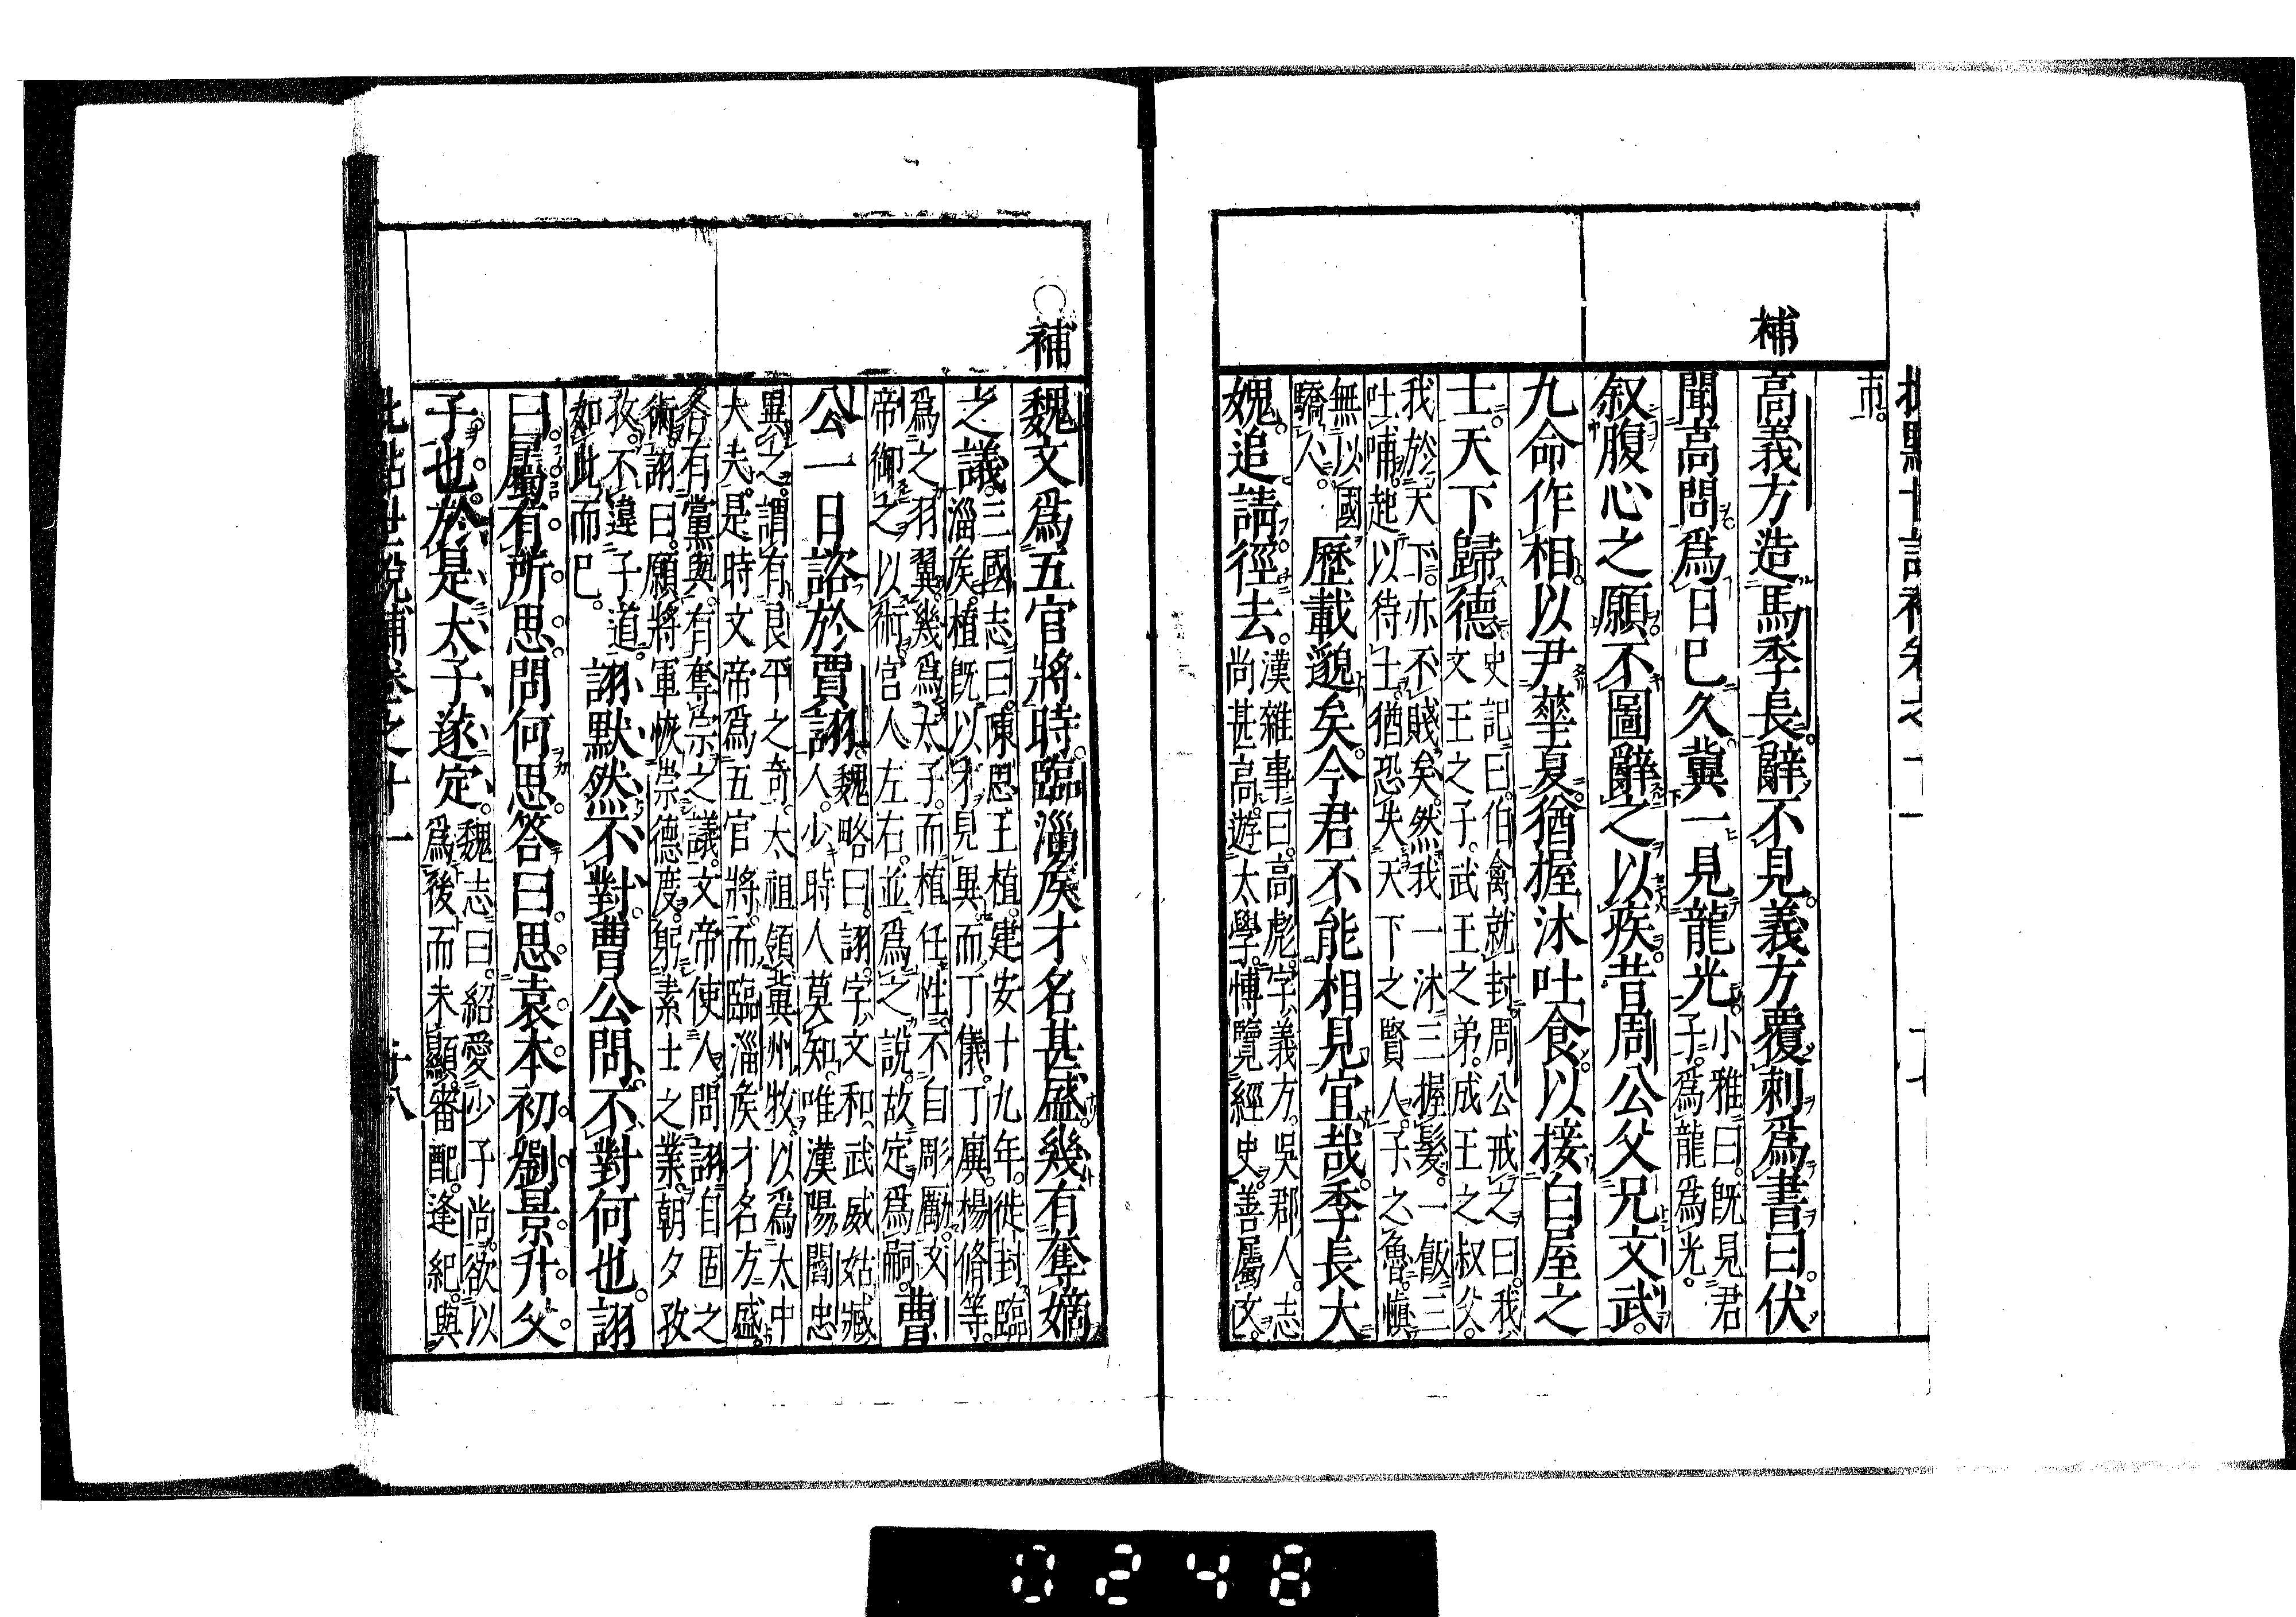 市。
補
高義方造馬季長。辭不見。義方覆刺爲書曰。伏
聞高問。爲日已久。冀一見龍光。小雅曰。既見君
子。爲龍爲光。
叙腹心之願。不圖辭之以疾。昔周公父兄文武。
九命作相。以尹華夏。猶握沐吐食。以接白屋之
士。天下歸德。史記曰。伯禽就封。周公戒之曰。我
文王之子。武王之弟。成王之叔父。
我於天下。亦不賤矣。然我一沐三握髮。一飯三
吐哺。起以待士。猶恐失天下之賢人。子之魯。愼
無以國
驕人。
歷載邈矣。今君不能相見。宜哉。季長大
媿。追請徑去。漢雜事曰。高彪。字義方。吳郡人。志
尚甚高。遊太學。博覽經史。善屬文。
補
魏文爲五官將時。臨淄矦才名甚盛。幾有奪嫡
之議。三國志曰。陳思王植。建安十九年。徙封臨
淄矦。植既以才見異。而丁儀。丁廙。楊脩等。
爲之羽翼。幾爲太子。而植任性。不自彫勵。文
帝御之以術。宮人左右。並爲之說。故定爲嗣。
曹
公一日諮於賈詡。魏略曰。詡。字文和。武威姑臧
人。少時人莫知。唯漢陽閻忠
異之。謂有良平之奇。太祖領冀州牧。以爲太中
大夫。是時文帝爲五官將。而臨淄矦才名方盛。
各有黨與。有奪宗之議。文帝使人問詡自固之
術。詡曰。願將軍恢崇德度。躬素士之業。朝夕孜
孜。不違子道。
如此而已。
詡默然不對。曹公問。不對何也。詡
曰。屬有所思。問何思。答曰。思袁本初劉景升父
子也。於是太子遂定。魏志曰。紹愛少子尚。欲以
爲後而未顯。審配。逢紀。與
0248